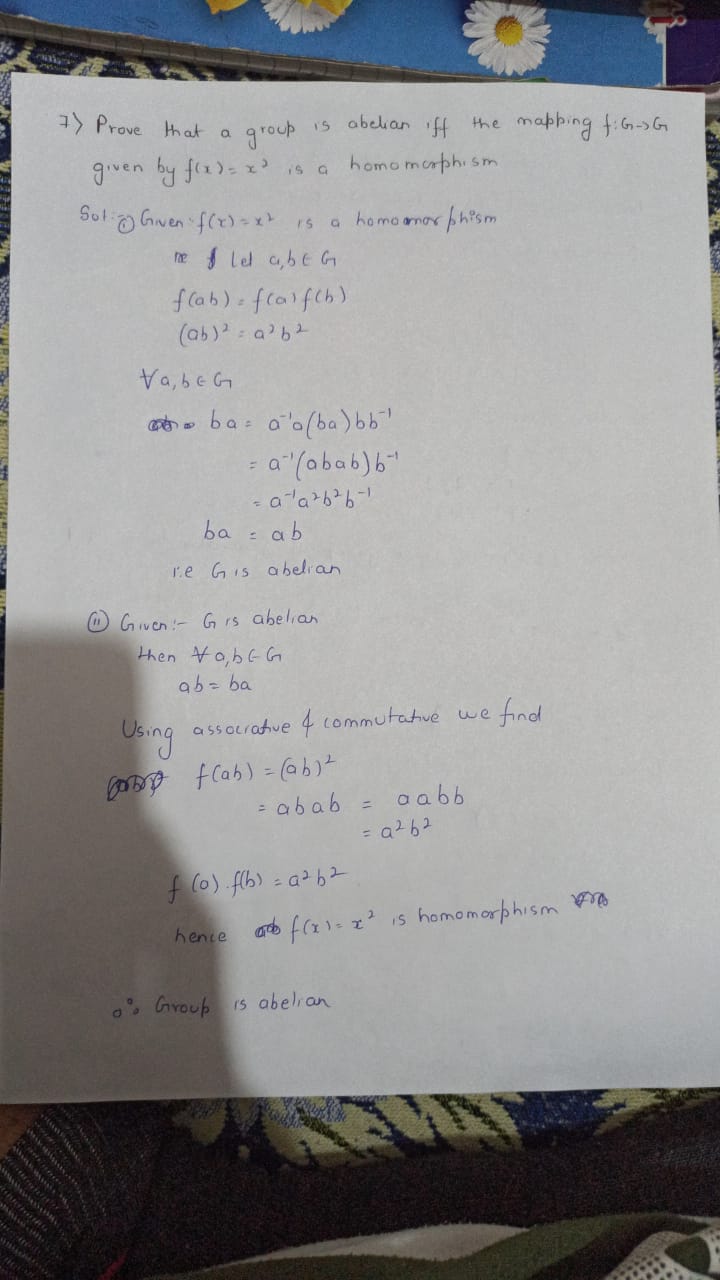 7) Prove that a group is abelian iff the mapping f:G->G
given by f(x) = x² is a homomorphism
Sol:- ① Given: f(x) = x² is a homoomorphism
Let a,b ∈ G
f(ab) = f(a) f(b)
(ab)² = a²b²
∀a,b ∈ G
ba = a⁻¹a(ba)bb⁻¹
= a⁻¹(abab)b⁻¹
= a⁻¹a²b²b⁻¹
ba = ab
i.e G is abelian
⑪ Given:- G is abelian
then ∀a,b ∈ G
ab = ba
Using associative & commutative we find
f(ab) = (ab)²
= abab = aabb
= a²b²
f(a).f(b) = a²b²
hence f(x) = x² is homomorphism
∴ Group is abelian